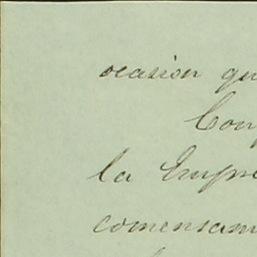 ocasion qu
Con
la Empre
comensam